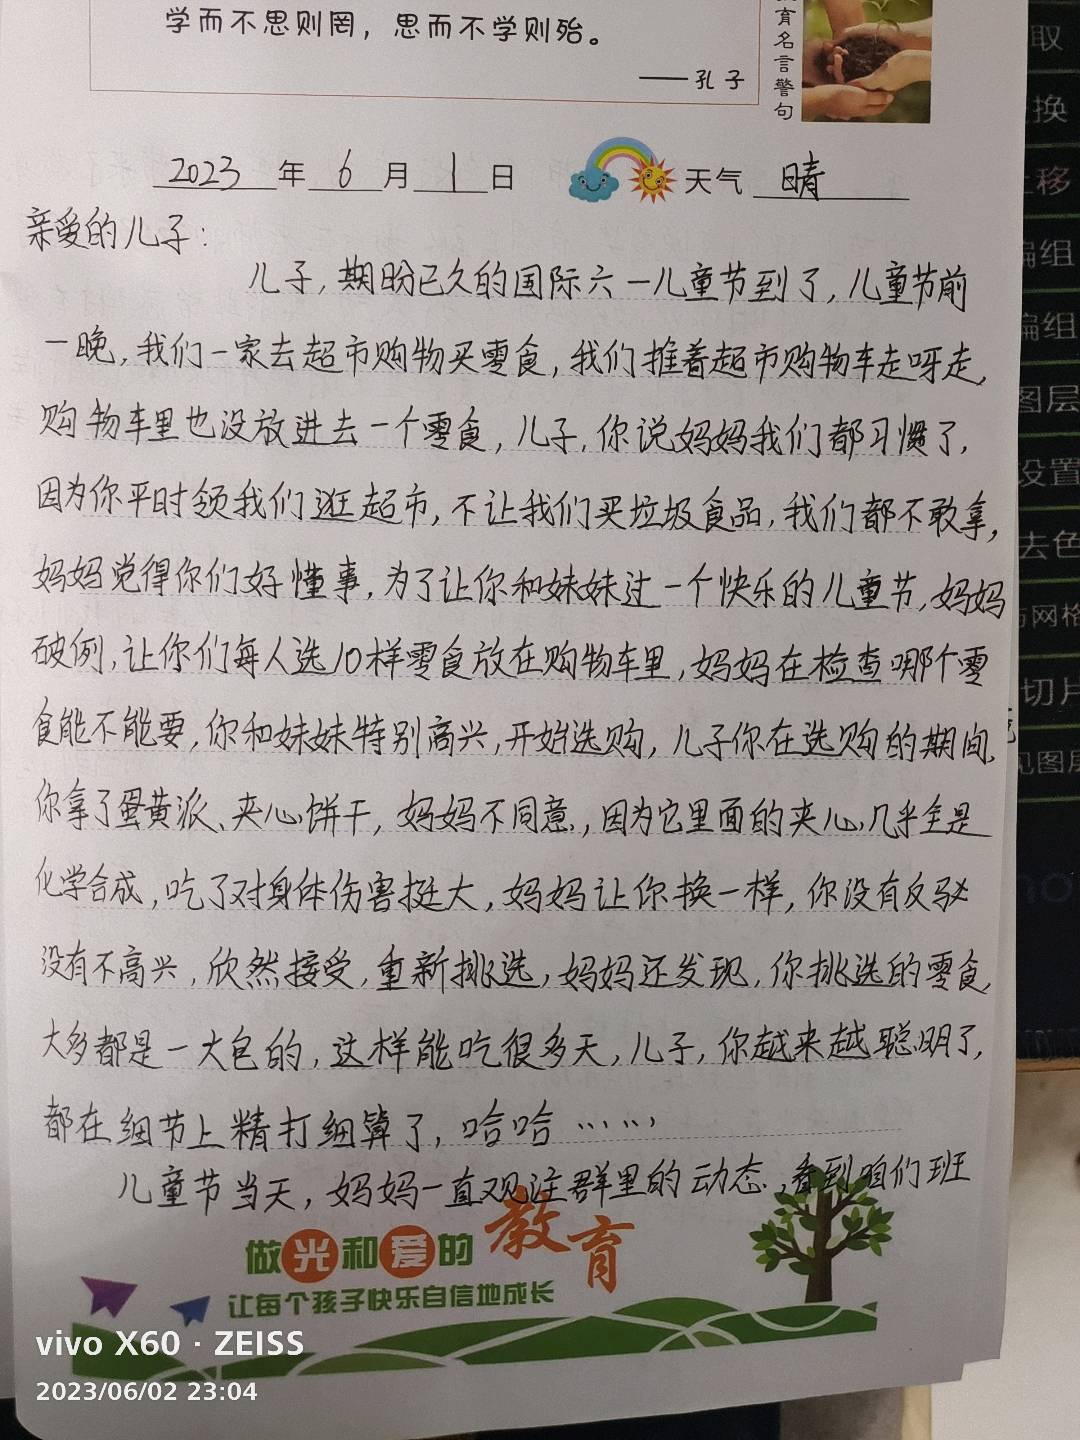 学而不思则罔，思而不学则殆。
——孔子
育名言警句
2023年6月1日 天气 晴
亲爱的儿子：
儿子，期盼已久的国际六一儿童节到了，儿童节前
一晚，我们一家去超市购物买零食，我们推着超市购物车走呀走，
购物车里也没放进去一个零食，儿子，你说妈妈我们都习惯了，
因为你平时领我们逛超市，不让我们买垃圾食品，我们都不敢拿，
妈妈觉得你们好懂事，为了让你和妹妹过一个快乐的儿童节，妈妈
破例，让你们每人选10样零食放在购物车里，妈妈在检查哪个零
食能不能要，你和妹妹特别高兴，开始选购，儿子你在选购的期间，
你拿了蛋黄派、夹心饼干，妈妈不同意，因为它里面的夹心几乎全是
化学合成，吃了对身体伤害挺大，妈妈让你换一样，你没有反驳
没有不高兴，欣然接受，重新挑选，妈妈还发现，你挑选的零食，
大多都是一大包的，这样能吃很多天，儿子，你越来越聪明了，
都在细节上精打细算了，哈哈……
儿童节当天，妈妈一直观注群里的动态，看到咱们班
做光和爱的教育
让每个孩子快乐自信地成长
vivo X60 · ZEISS
2023/06/02 23:04
取
换
移
编组
编组
图层
设置
去色
网格
切片
见图层